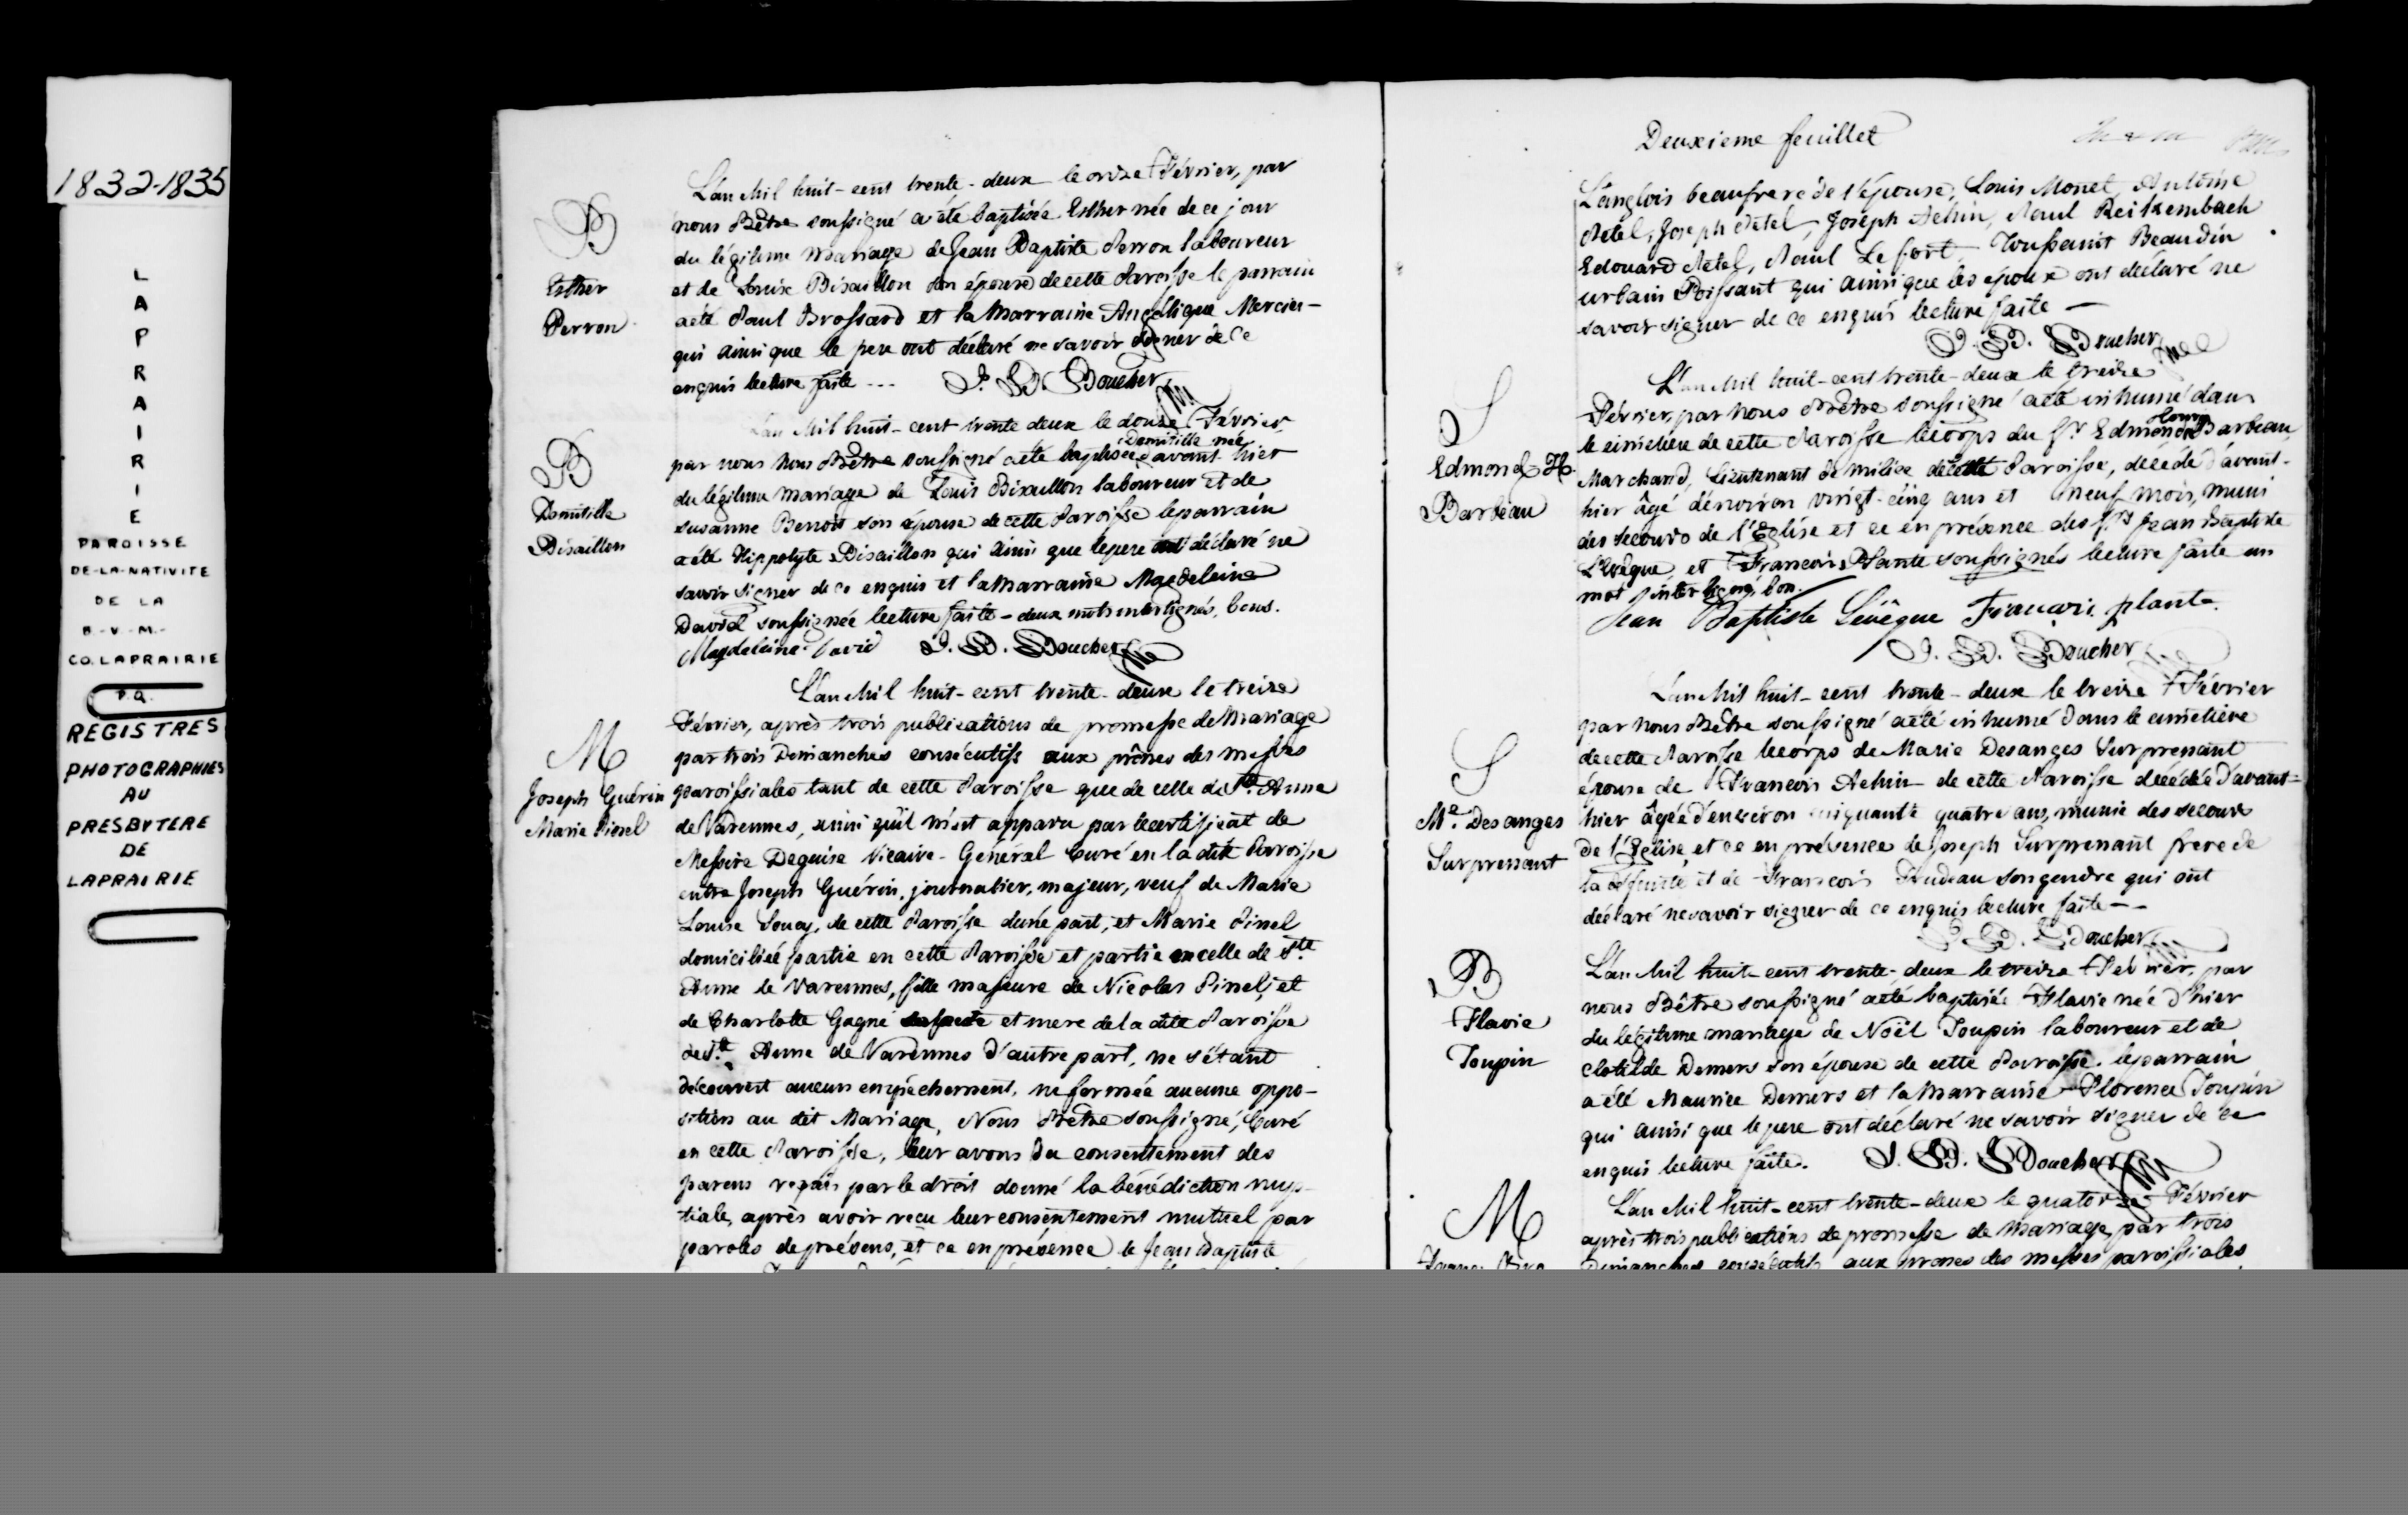 1832-1835
L
A
P
R
A
I
R
I
E
PAROISSE
DE-LA-NATIVITE
DE LA
B-V-M-
CO. LAPRAIRIE
P.Q.
REGISTRES
PHOTOGRAPHIES
AU
PRESBYTERE
DE
LAPRAIRIE
B
Esther
Perron
L'an Mil huit-cent trente-deux le onze Février, par
nous Prêtre soussigné a été baptisée Esther née de ce jour
du légitime mariage de Jean Baptiste Perron laboureur
et de Louise Bisaillon son épouse de cette Paroisse le parrain
a été Paul Brossard et la Marraine Angélique Mercier
qui ainsi que le pere ont déclaré ne savoir signer de ce
enquis lecture faite --- J. B. Boucher
B
Domitille
Bisaillon
L'an Mil huit-cent trente deux le douze Février
Domitille née
par nous nous Prêtre soussigné a été baptisée d'avant-hier
du légitime mariage de Louis Bisaillon laboureur et de
Susanne Benoit son épouse de cette Paroisse le parrain
a été Hippolyte Bisaillon qui ainsi que le pere ont déclaré ne
savoir signer de ce enquis et la Marraine Magdeleine
David soussignée lecture faite - deux mots interlignés, bons.
Magdeleine David J. B. Boucher
M
Joseph Guérin
Marie Pinel
L'an Mil huit-cent trente-deux le treize
Février, après trois publications de promesse de Mariage
par trois Dimanches consécutifs aux prônes des messes
paroissiales tant de cette Paroisse que de celle de Ste Anne
de Varennes, ainsi qu'il m'est apparu par le certificat de
Messire Deguise Vicaire-Général Curé en la dite Paroisse
entre Joseph Guérin, journalier, majeur, veuf de Marie
Louise Soucy, de cette Paroisse d'une part, et Marie Pinel
domiciliée partie en cette Paroisse et partie en celle de Ste
Anne de Varennes, fille majeure de Nicolas Pinel, et
de Charlotte Gagné ses pere et mere de la dite Paroisse
de Ste Anne de Varennes d'autre part, ne s'étant
découvert aucun empêchement, ni formée aucune oppo-
sition au dit Mariage, Nous Prêtre soussigné, Curé
en cette Paroisse, leur avons du consentement des
parens requis par le droit donné la bénédiction nup-
tiale, après avoir reçu leur consentement mutuel par
paroles de présens, et ce en présence de Jean Baptiste
Deuxieme feuillet
Langlois beaufrere de l'épouse, Louis Monet, Antoine
Pétel, Joseph Pétel, Joseph Achin, Paul Reitzembach
Edouard Pétel, Paul Lefort, Toussaint Beaudin
urbain Poissant qui ainsi que les époux ont déclaré ne
savoir signer de ce enquis lecture faite -
J. B. Boucher
S
Edmond H.
Barbeau
L'an Mil huit-cent trente-deux le treize
Février, par nous Prêtre soussigné a été inhumé dans
Henry
le cimetiere de cette Paroisse le corps du Sr Edmond Barbeau
Marchand, Lieutenant de milice de cette Paroisse, décédé d'avant-
hier âgé d'environ vingt-cinq ans et neuf mois, muni
des secours de l'Eglise et ce en présence des Srs Jean Baptiste
L'évêque et Francois Plante soussignés lecture faite un
mot interligné, bon.
Jean Baptiste Lévêque Francois plante
J. B. Boucher
S
Me. Desanges
Surprenant
L'an Mil huit-cent trente-deux le treize Février
par nous Prêtre soussigné a été inhumé dans le cimetiere
de cette Paroisse le corps de Marie Desanges Surprenant
épouse de Francois Achin de cette Paroisse décédée d'avant-
hier âgée d'environ cinquante quatre ans, munie des secours
de l'Eglise et ce en présence de Joseph Surprenant frere de
la défunte et de Francois Trudeau son gendre qui ont
déclaré ne savoir signer de ce enquis lecture faite --
J. B. Boucher
B
Flavie
Toupin
L'an Mil huit-cent trente-deux le treize Février, par
nous Prêtre soussigné a été baptisée Flavie née d'hier
du légitime mariage de Noël Toupin laboureur et de
Clotilde Demers son épouse de cette Paroisse. le parrain
a été Maurice Demers et la Marraine Florence Toupin
qui ainsi que le pere ont déclaré ne savoir signer de ce
enquis lecture faite. J. B. Boucher
M
L'an Mil huit-cent trente-deux le quatorze Février
après trois publications de promesse de mariage par trois
Dimanches consécutifs aux prones des messes paroissiales